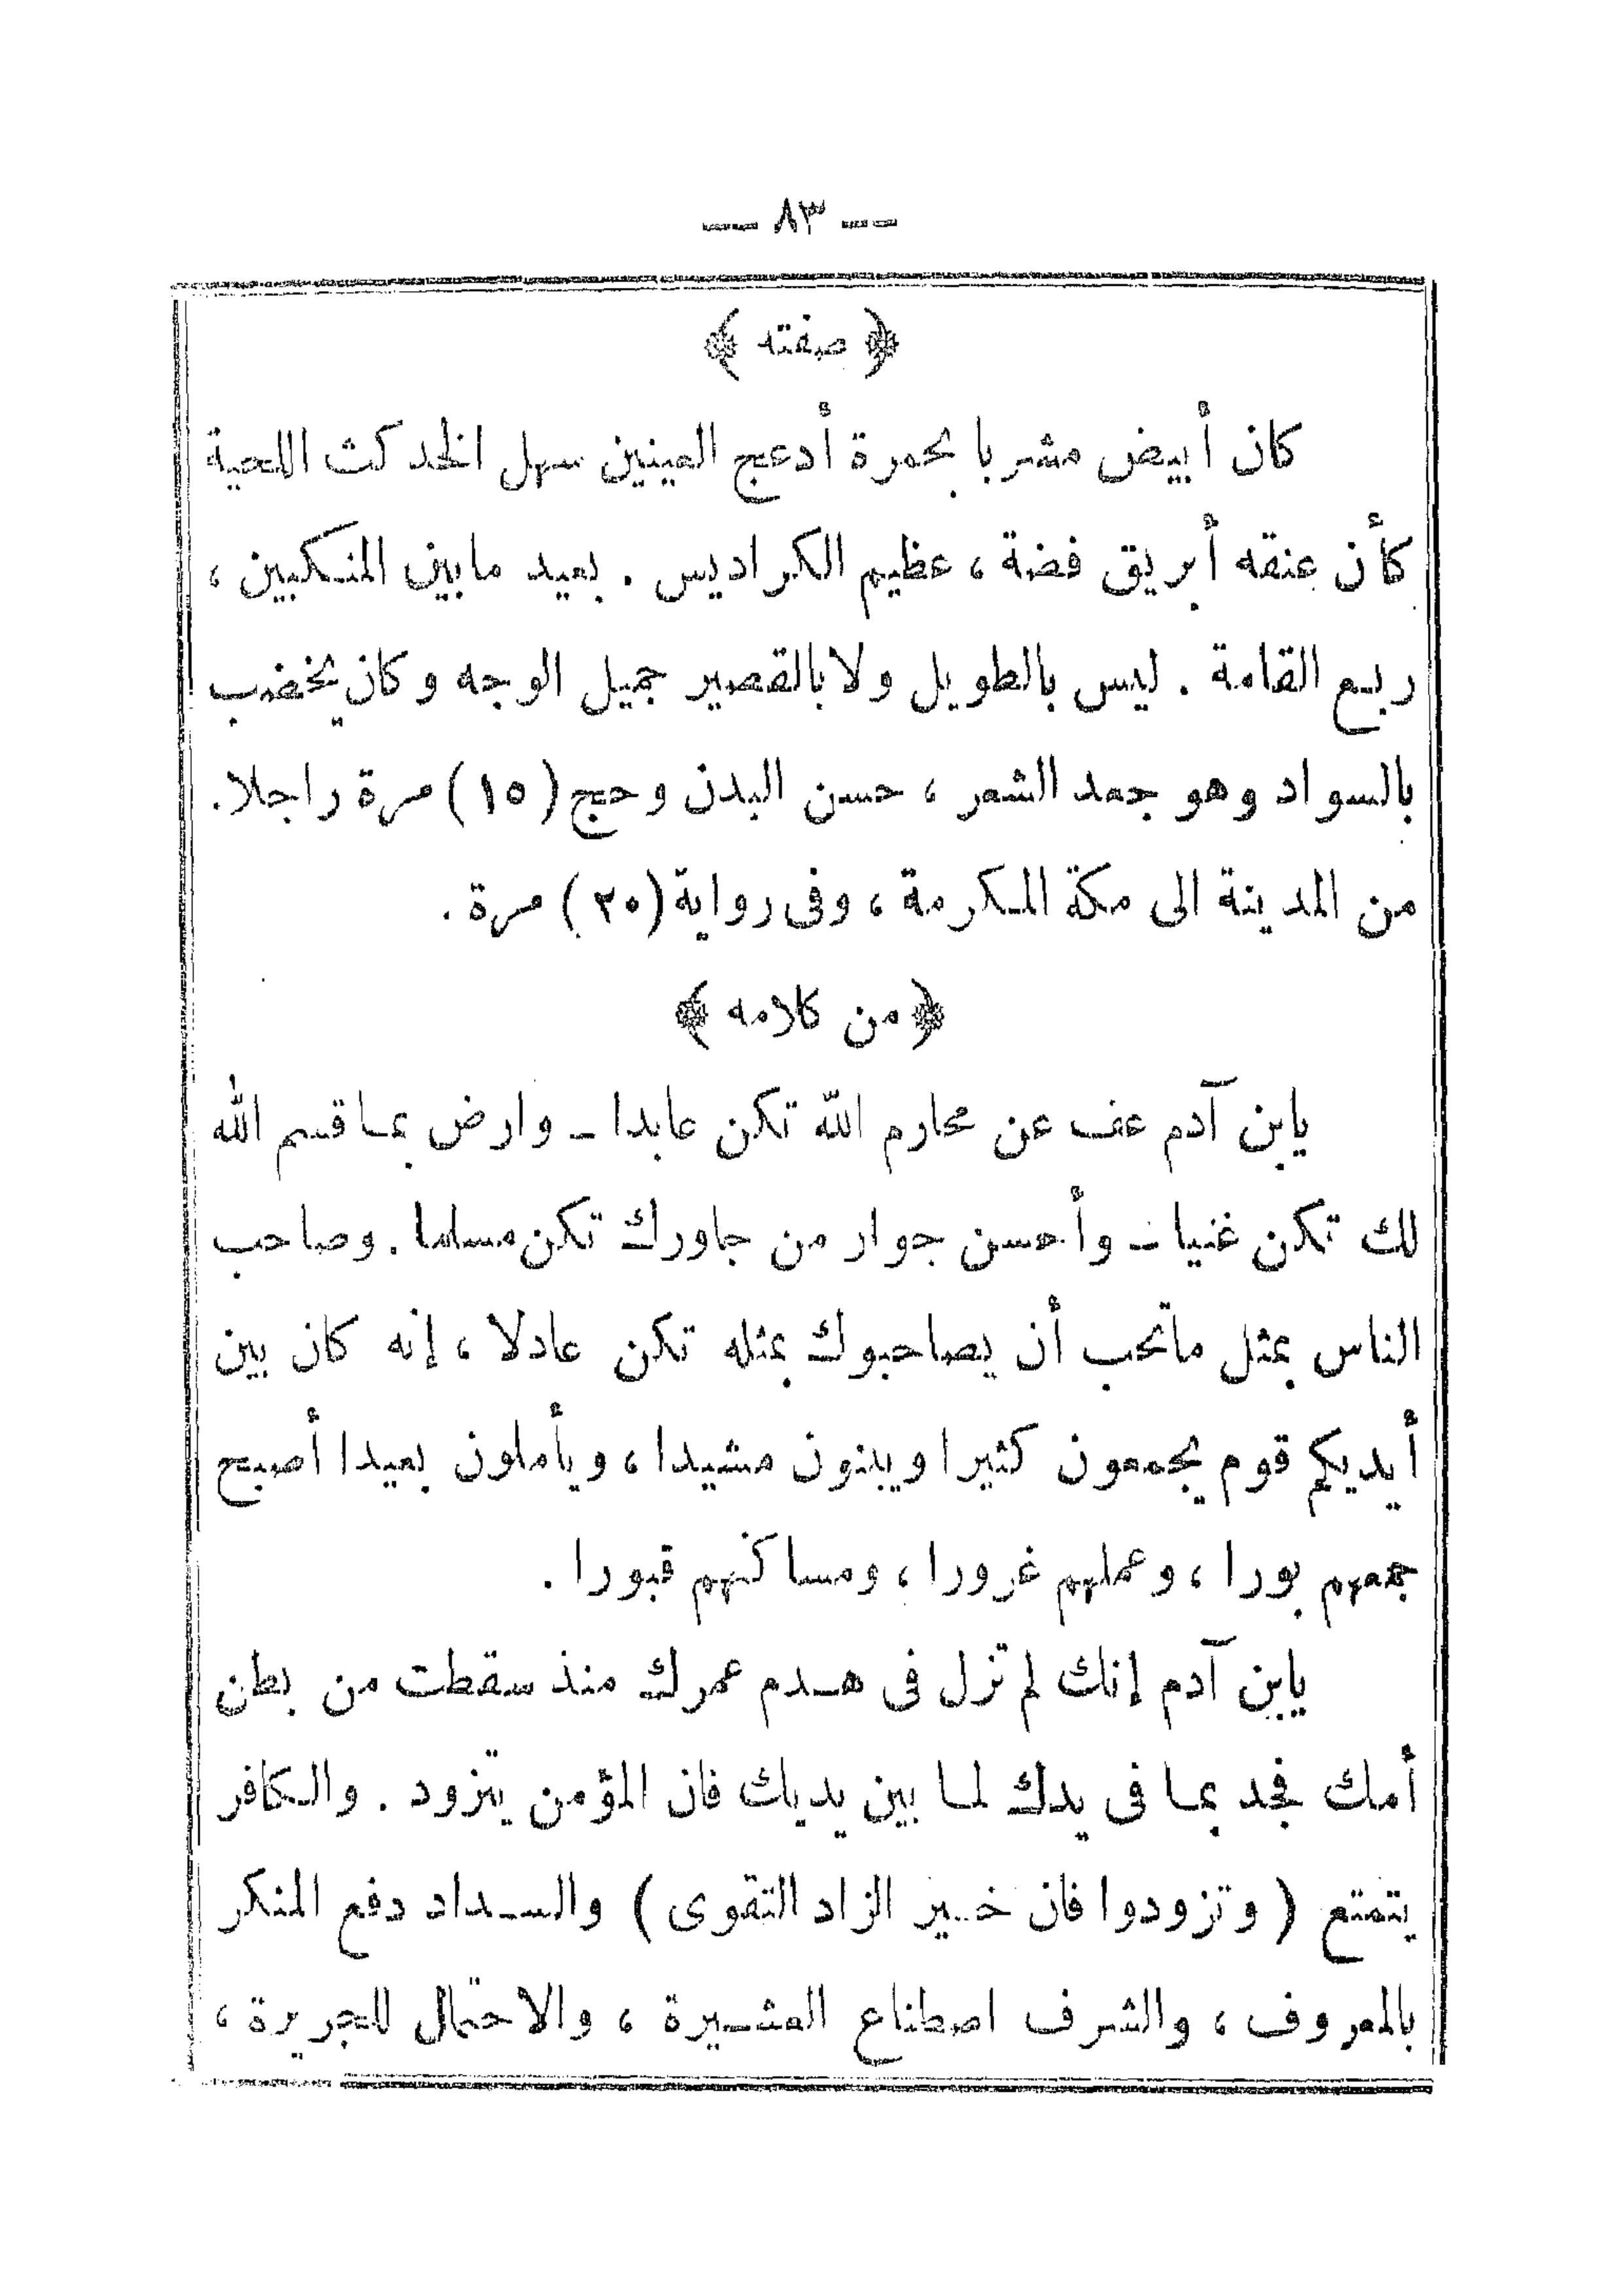 — ٨٣ —
﴿ صفته ﴾
كان أبيض مشربا بحمرة أدعج العينين سهل الخد كث اللحية
كأن عنقه أبريق فضة ، عظيم الكراديس . بعيد مابين المنكبين ،
ربع القامة . ليس بالطويل ولا بالقصير جميل الوجه وكان يخضب
بالسواد وهو جعد الشعر ، حسن البدن وحج (١٥) مرة راجلا.
من المدينة الى مكة المكرمة ، وفى رواية (٢٠) مرة .
﴿ من كلامه ﴾
يابن آدم عف عن محارم الله تكن عابدا ـ وارض بما قسم الله
لك تكن غنيا ـ وأحسن جوار من جاورك تكن مسلما . وصاحب
الناس بمثل ماتحب أن يصاحبوك بمثله تكن عادلا ، إنه كان بين
أيديكم قوم يجمعون كثيرا ويبنون مشيدا ، ويأملون بعيدا أصبح
جمعهم بورا ، وعملهم غرورا ، ومساكنهم قبورا .
يابن آدم إنك لم تزل فى هدم عمرك منذ سقطت من بطن
أمك فجد بما فى يدك لما بين يديك فان المؤمن يتزود . والكافر
يتمتع ( وتزودوا فان خير الزاد التقوى ) والسداد دفع المنكر
بالمعروف ، والشرف اصطناع العشيرة ، والاحتمال للجريرة ،